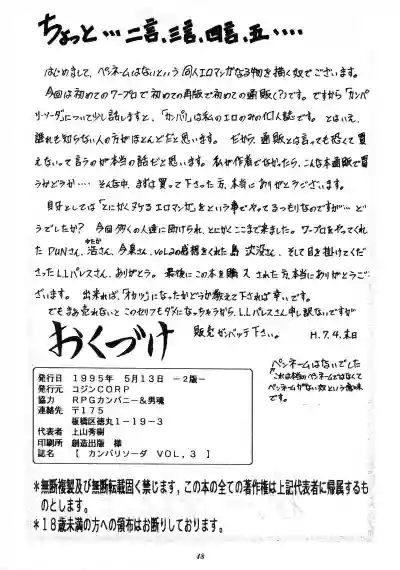 ちょっと…二言、三言、四言、五‥‥
はじめまして、ペンネームはないという同人エロマンガなる物を描く奴でございます。
今回は初めてのワープロで初めての再版で初めての通販(?)です。ですから「カンパ
リソーダ」について少し話しますと、「カンパリ」は私のエロのみの個人誌です。とはいえ、
誰れも知らない人の方がほとんどだと思います。だから、通販とは言っても恐くて買
えないって言うのが本当の話だと思います。私が作者でなかったら、こんな本通販で買
うかどうか‥‥そんな中、まずは買って下さった方、本当にありがとうございます。
自分としては「とにかくヌケるエロマンガ」をという事でやってるつもりなのですが…ど
うでしたか? 今回多くの人達に助けられ、とにかくここまで来ました。ワープロをやってくれ
たDUNさん、浩さん、今泉さん、vol.2の感想をくれた島 次郎さん、そして目を掛けてくだ
さったLLパレスさん、ありがとう。最後にこの本を購入された方、本当にありがとうご
ざいます。出来れば、「オカツ」になったかどうか教えて下されば幸いです。
でもまあ売れないとこのセリフもダメになっちゃうから、LLパレスさん申し訳ないですが
販売ガンバッテ下さい。 H.7.4.末日
おくづけ
ペンネームはないでした
これは本当のペンネームではなくて
ペンネームがない奴という意味
です。
発行日 1995年 5月13日 −2版−
発行元 コジンCORP
協力 RPGカンパニー&男魂
連絡先 〒175
板橋区徳丸1−19−3
代表者 上山秀樹
印刷所 創造出版 様
誌名 [ カンパリソーダ VOL,3 ]
*無断複製及び無断転載固く禁じます,この本の全ての著作権は上記代表者に帰属するも
のとします。
*18歳未満の方への領布はお断りしております。
48